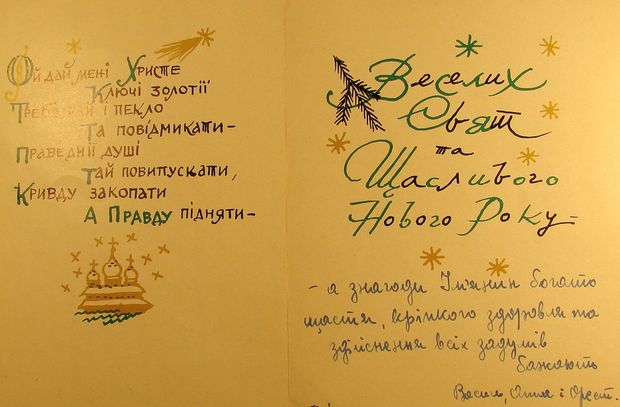 Ой дай мені Христе
Ключі золотії
Треба рай і пекло
Та повідмикати-
Праведнії душі
Тай повипускати,
Кривду закопати
А Правду підняти-
Веселих
Свят
та
Щасливого
Нового Року-
- а знагоди Ім'янин богато
щастя, кріпкого здоровля та
здійснення всіх задумів
бажають
Василь, Алла і Орест.